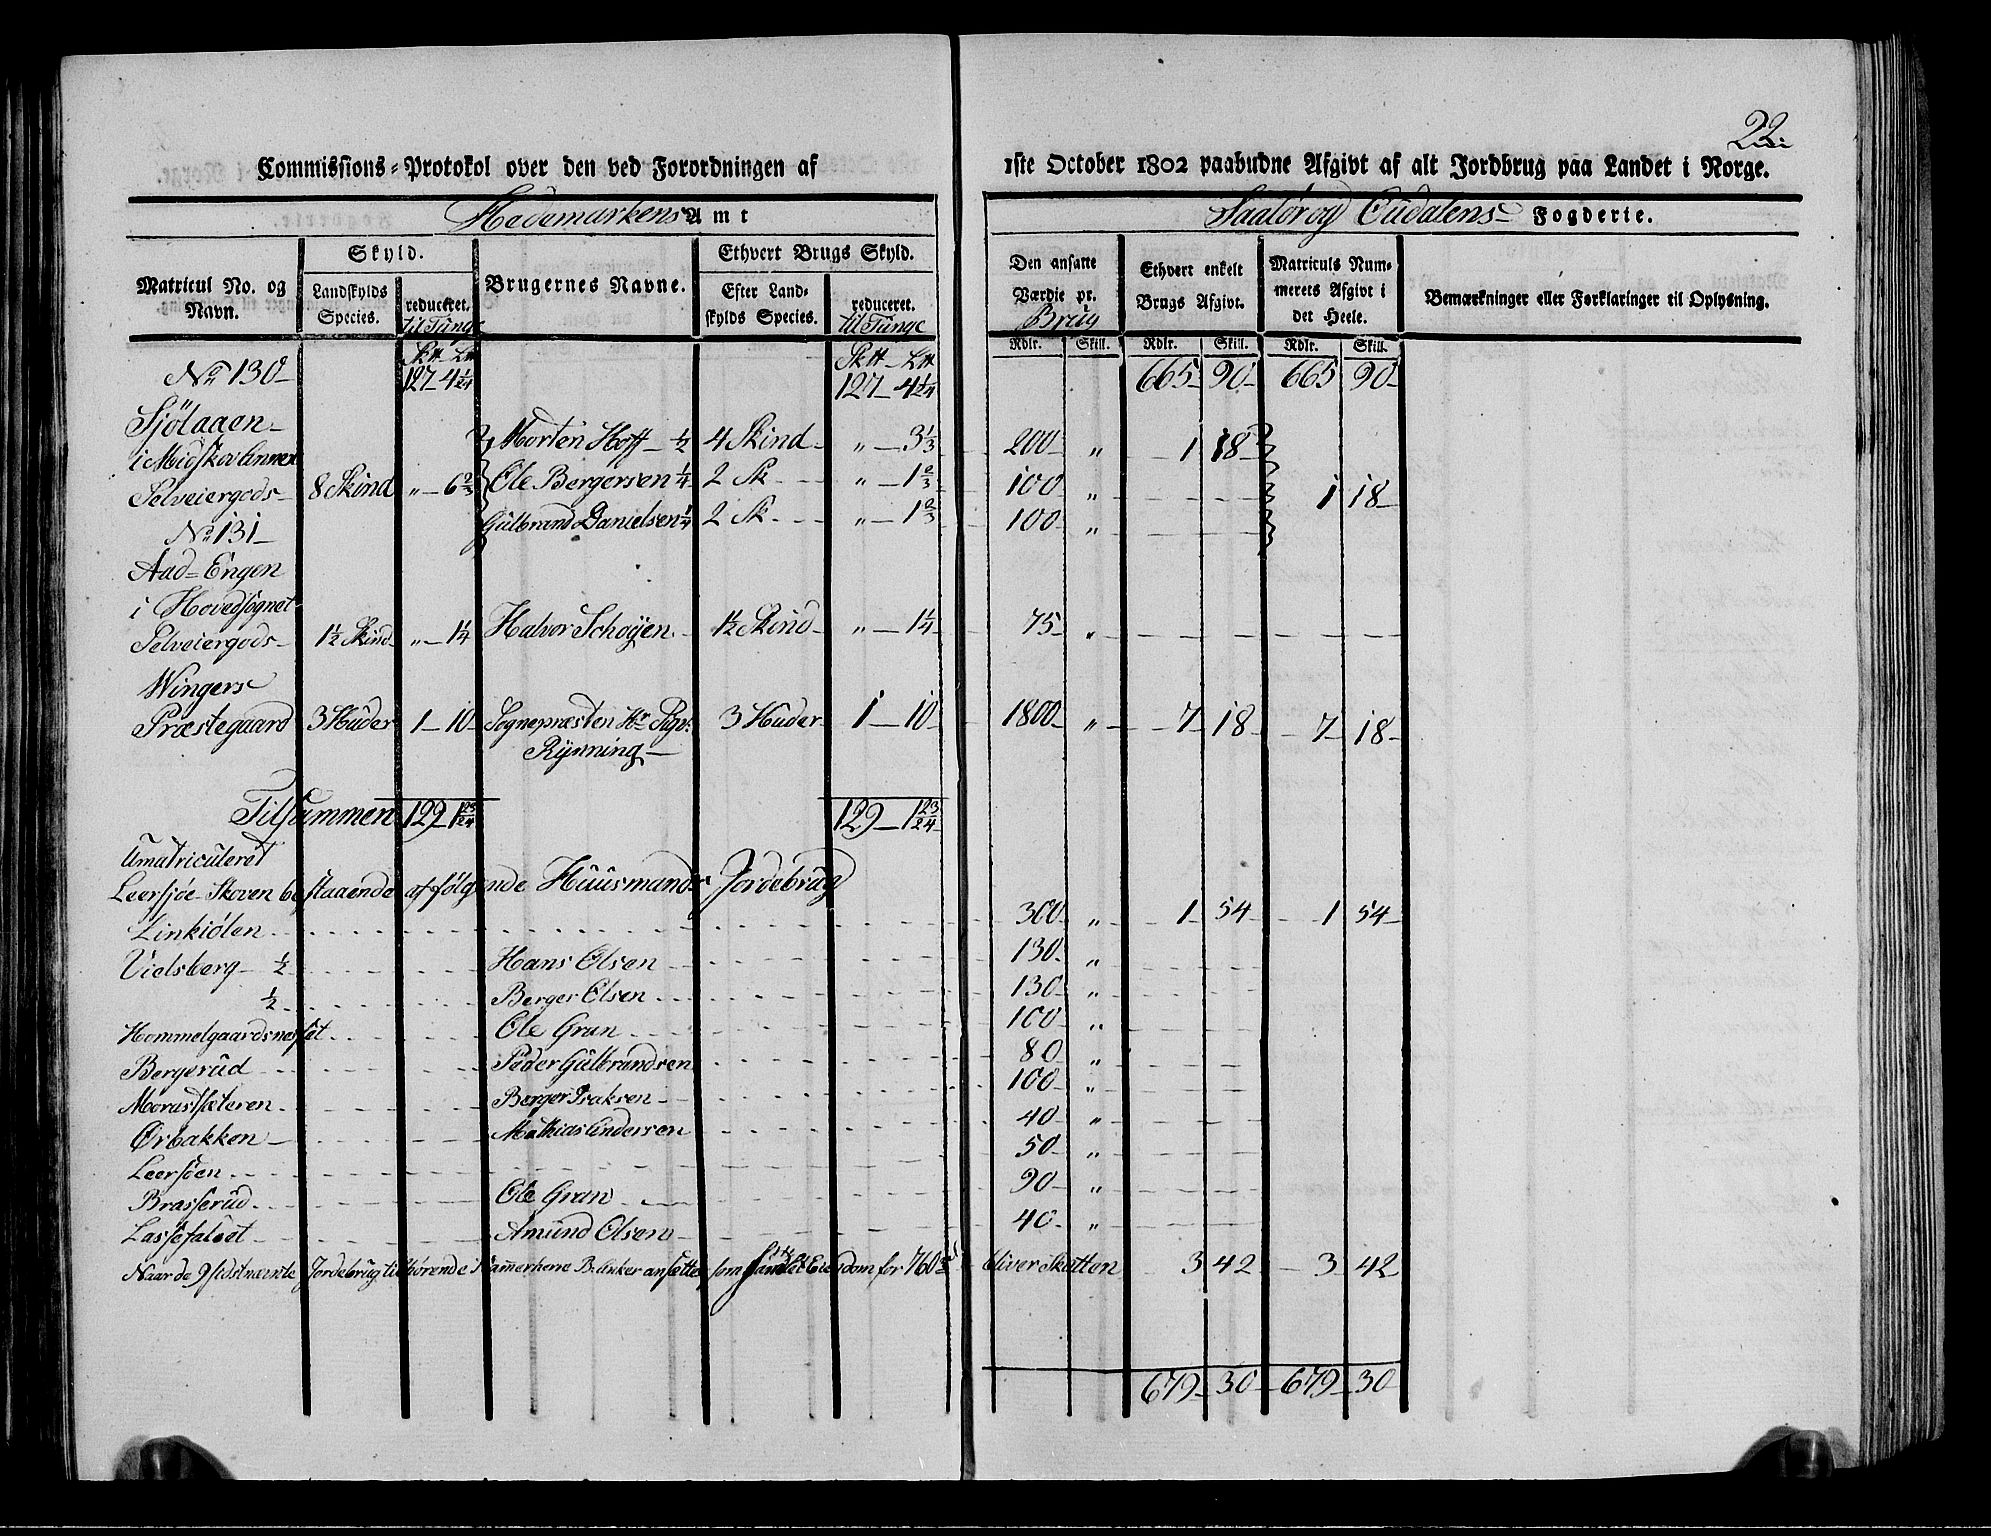 22
Commissions-Protokol over den ved Forordningen af 1ste October 1802 paabudne Afgivt af alt Jordbrug paa Landet i Norge.
Hedemarkens Amt Saalør og Oudalens Fogderie.
Matricul No. og Navn.
Skyld.
Landskylds Species.
reduceret. til Tunge
Brugernes Navne.
Ethvert Brugs Skyld.
Efter Landskylds Species.
reduceret. til Tunge
Den ansatte Værdie pr. Brug
Ethvert enkelt Brugs Afgivt.
Matriculs Nummerets Afgivt i det Heele.
Bemærkninger eller Forklaringer til Oplysning.
Rdlr. Skill. Rdlr. Skill. Rdlr. Skill.
No 130 127 - 4 1/24 127 - 4 1/24 665 90 665 90
Sjølaaen
i Midskov Annex Morten Hoff - 1/2 4 Skind „ - 3 1/3 200 „ 1 18
Selveiergods 8 Skind „ - 6 2/3 Ole Bergersen 1/4 2 Sk „ - 1 2/3 100 „ 1 18
No 131 Gulbrand Danielsen 1/4 2 Sk „ - 1 2/3 100 „
Aad=Engen
i Hovedsognet
Selveiergods 1 1/2 Skind „ - 1 1/4 Halvor Schøyen 1 1/2 Skind „ - 1 1/4 75 „
Wingers
Præstegaard 3 Huder 1 - 10 Sognepræsten Hr 3 Huder 1 - 10 1800 „ 7 18 7 18
Rynning
Tilsammen 129 - 1 23/24 129 - 1 23/24
Umatriculeret
Leersjøe Skoven bestaaende af følgende Huusmands Jordebrug
Linkiølen 300 „ 1 54 1 54
Vielsberg 1/2 Hans Olsen 130 „
1/2 Berger Olsen 130 „
Hommelgaardsnæsset Ole Gran 100 „
Bergerud Peder Gulbrandsen 80 „
Morastsæteren Berger Isaksen 100 „
Ørbakken Mathias Andersen 40 „
Leersøen 50 „
Brasserud Ole Gran 90 „
Lassefaløet Amund Olsen 40 „
Naar de 9 sidstnævnte Jordebrug tilhørende Kammerherre Anker ansættes som samlet Eiendom for 760 bliver Skatten 3 42 3 42
679 30 679 30